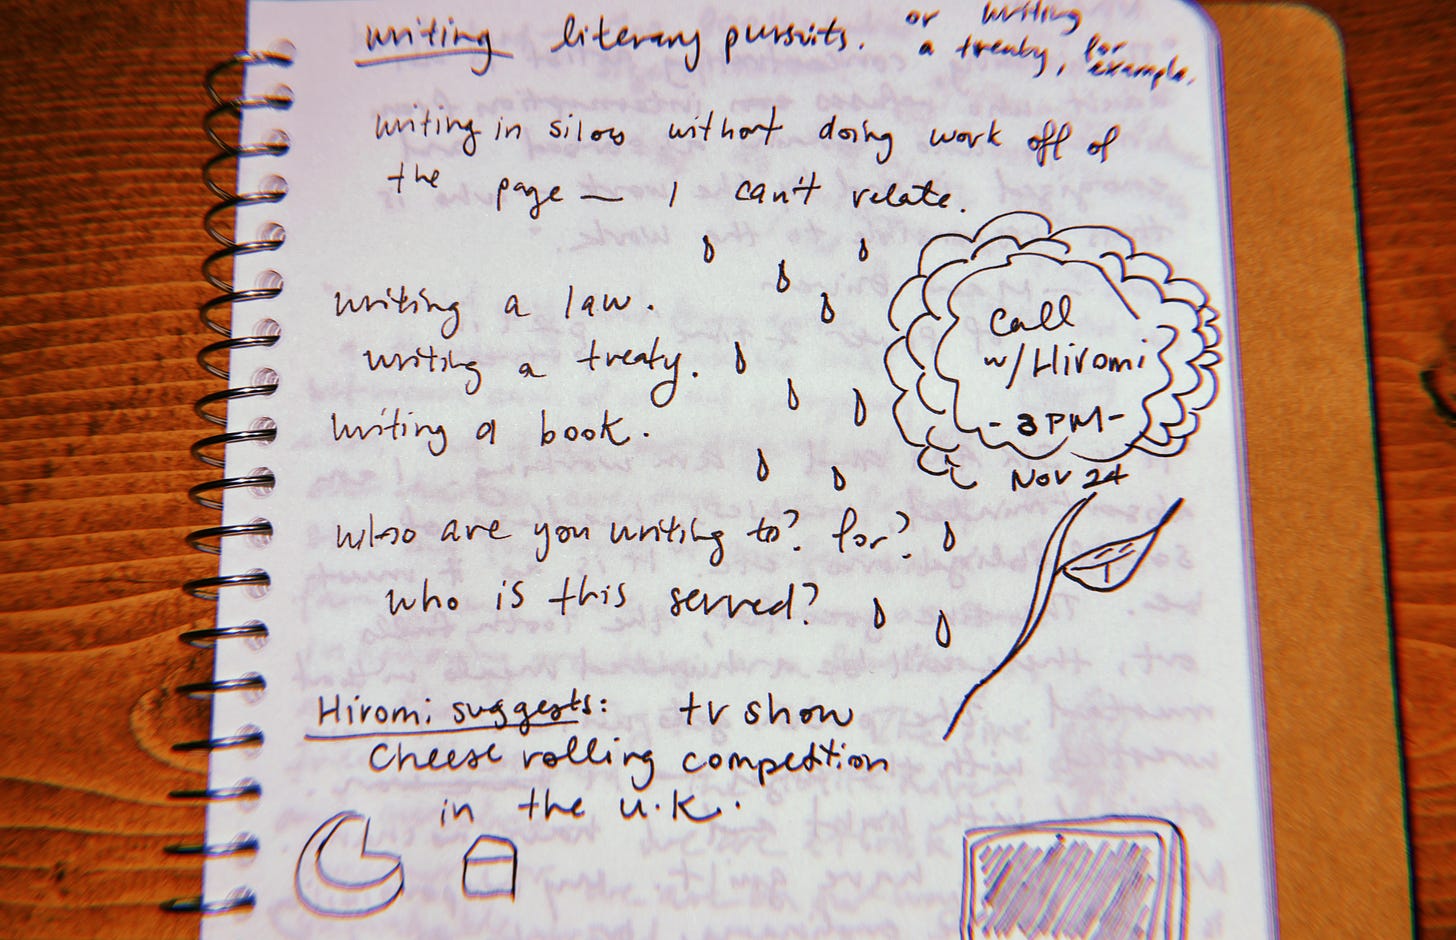 writing literary pursuits. or writing
a treaty, for
example.
writing in silos without doing work off of
the page — I can't relate.
writing a law.
writing a treaty.
writing a book.
call
w/Hiromi
-3PM-
Nov 24
who are you writing to? for?
who is this served?
Hiromi suggests: tv show
Cheese rolling competition
in the U.K.